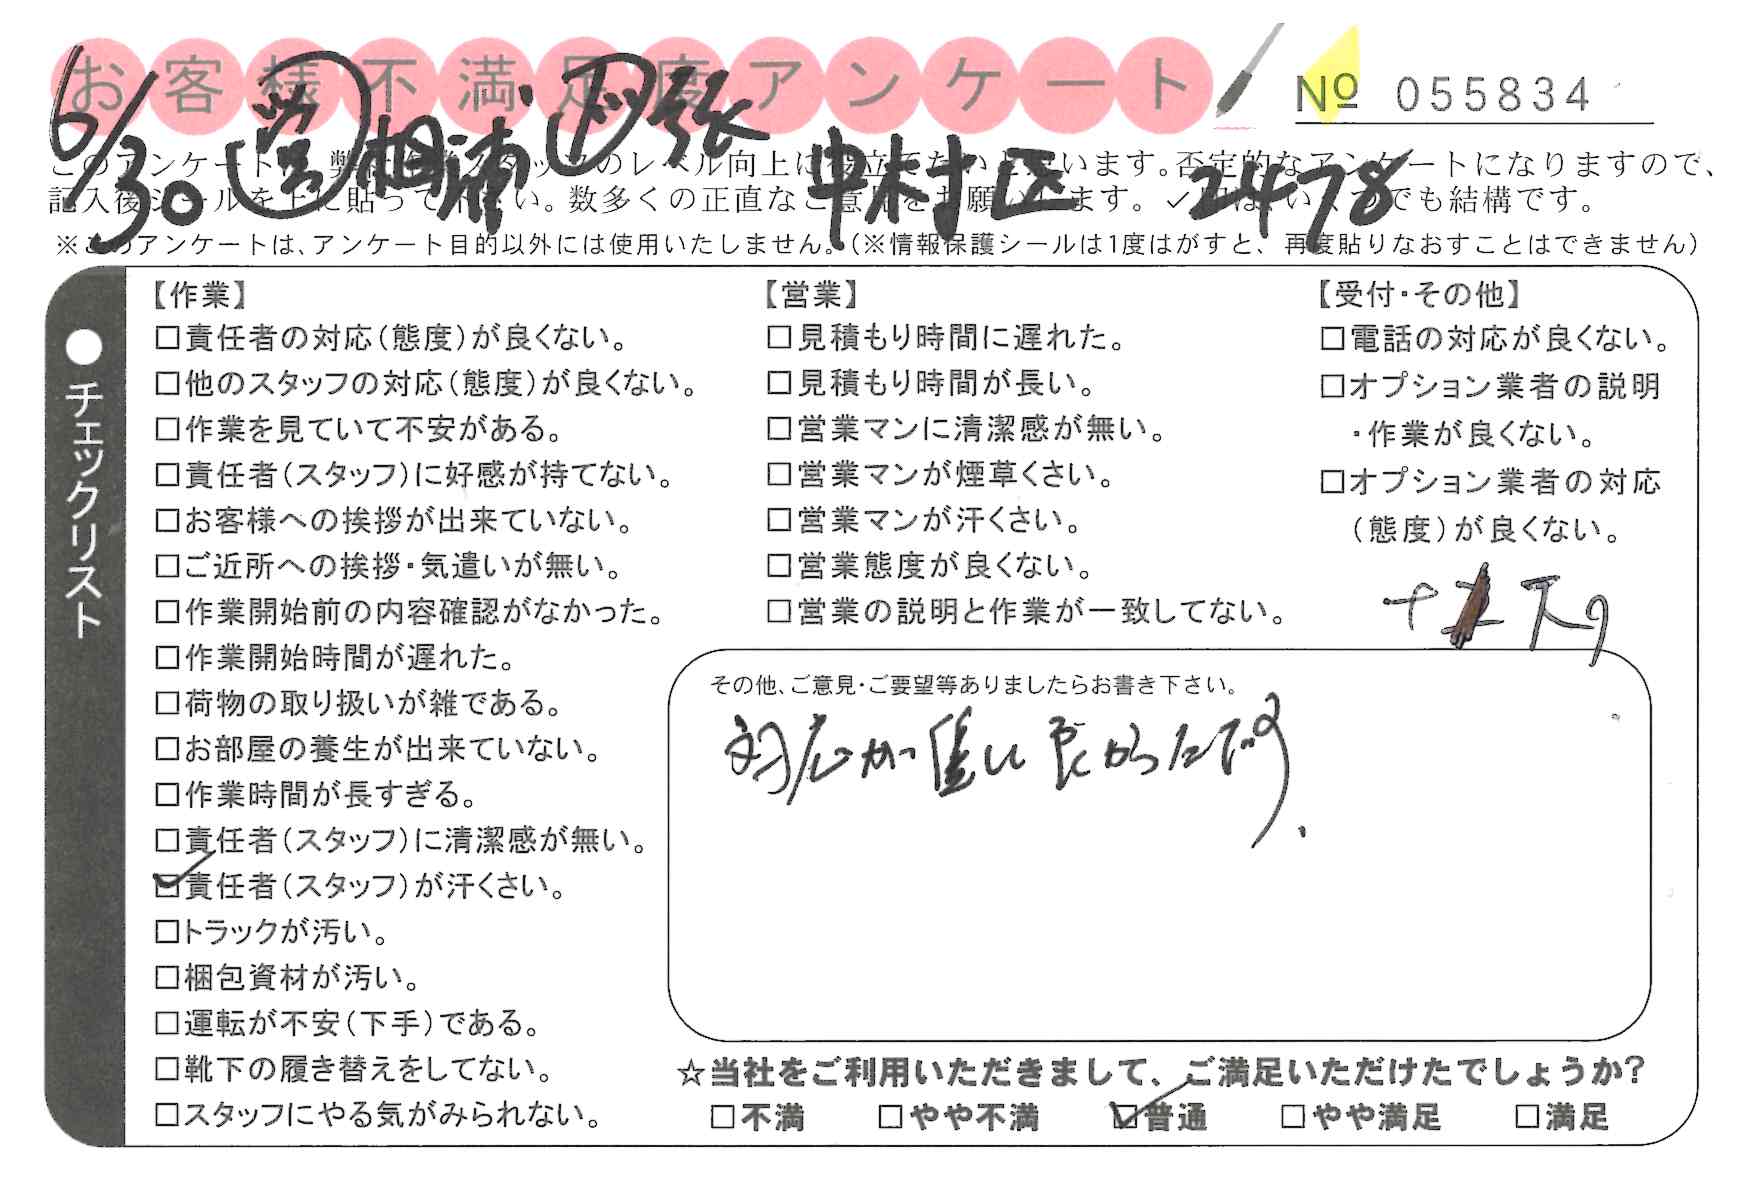 お客様不満足度アンケート
№ 055834
6/30 営 相浦 中村区 2478
このアンケートは、弊社作業スタッフのレベル向上に役立てたいと思います。否定的なアンケートになりますので、
記入後シールを上に貼って下さい。数多くの正直なご意見をお願いします。✓印は、いくつでも結構です。
※このアンケートは、アンケート目的以外には使用いたしません。(※情報保護シールは1度はがすと、再度貼りなおすことはできません)
●チェックリスト
【作業】
□責任者の対応(態度)が良くない。
□他のスタッフの対応(態度)が良くない。
□作業を見ていて不安がある。
□責任者(スタッフ)に好感が持てない。
□お客様への挨拶が出来ていない。
□ご近所への挨拶・気遣いが無い。
□作業開始前の内容確認がなかった。
□作業開始時間が遅れた。
□荷物の取り扱いが雑である。
□お部屋の養生が出来ていない。
□作業時間が長すぎる。
□責任者(スタッフ)に清潔感が無い。
☑責任者(スタッフ)が汗くさい。
□トラックが汚い。
□梱包資材が汚い。
□運転が不安(下手)である。
□靴下の履き替えをしてない。
□スタッフにやる気がみられない。
【営業】
□見積もり時間に遅れた。
□見積もり時間が長い。
□営業マンに清潔感が無い。
□営業マンが煙草くさい。
□営業マンが汗くさい。
□営業態度が良くない。
□営業の説明と作業が一致してない。
【受付・その他】
□電話の対応が良くない。
□オプション業者の説明
・作業が良くない。
□オプション業者の対応
(態度)が良くない。
その他、ご意見・ご要望等ありましたらお書き下さい。
対応が 良かったです.
☆当社をご利用いただきまして、ご満足いただけたでしょうか?
□不満 □やや不満 ☑普通 □やや満足 □満足